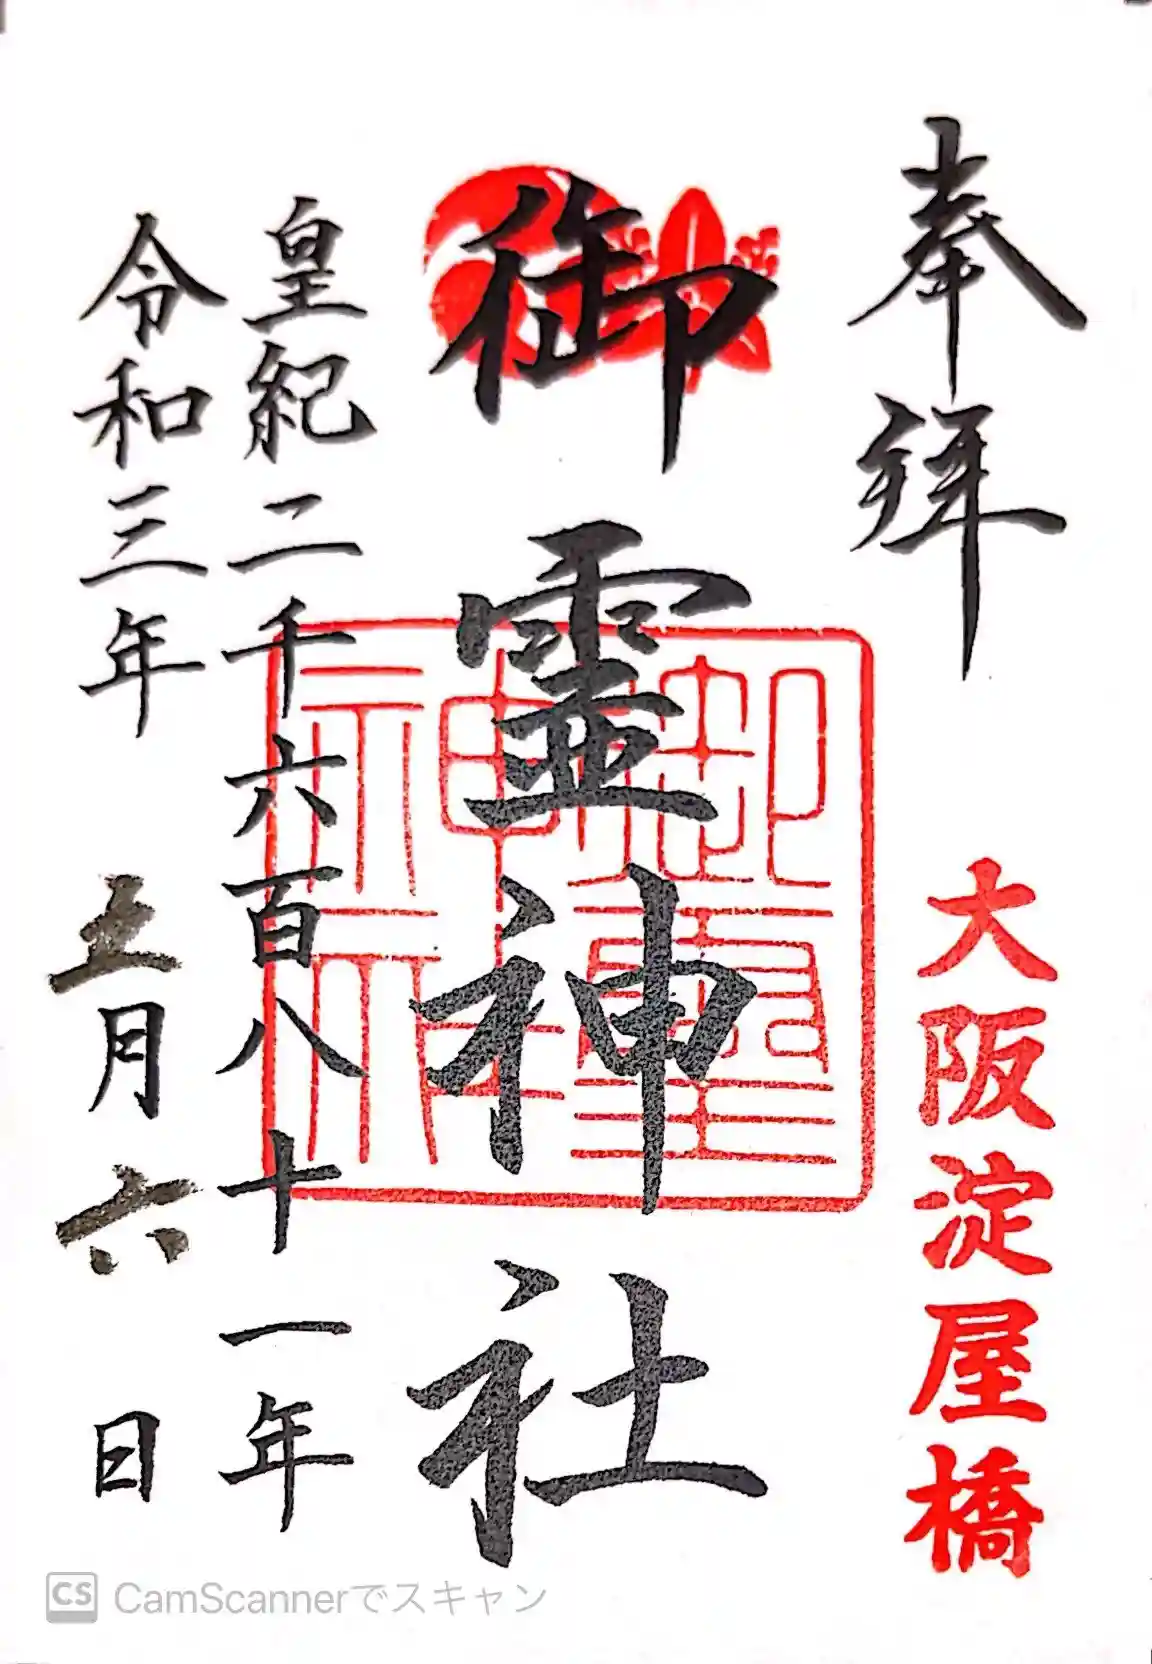 奉拝
大阪淀屋橋
御霊神社
御霊神社
皇紀二千六百八十一年
令和三年 五月六日
CS CamScannerでスキャン